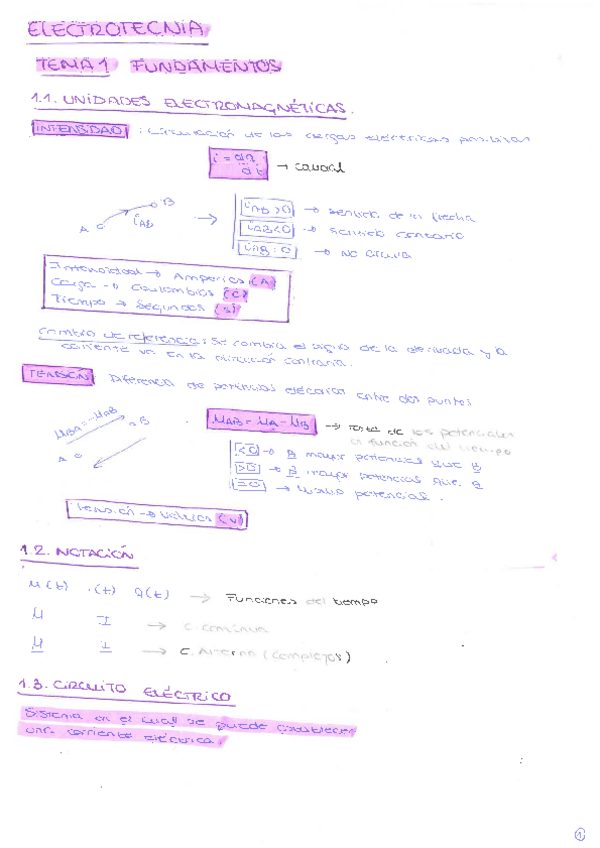 ELECTROTECNIA
TEMA 1 FUNDAMENTOS
1.1. UNIDADES ELECTROMAGNÉTICAS.
INTENSIDAD : Circulación de las cargas eléctricas positivas
i = dq/dt → caudal
A B iAB → iAB > 0 → sentido de la flecha
iAB < 0 → sentido contrario
iAB = 0 → No circula
Intensidad → Amperios (A)
Carga → Coulombios (C)
Tiempo → Segundos (s)
Cambio de referencia: Se cambia el signo de la derivada y la
corriente va en la dirección contraria.
TENSIÓN Diferencia de potencial eléctrico entre dos puntos
UBA = -UAB A B UAB = UA - UB → resta de los potenciales
en función del tiempo
< 0 → B mayor potencial que
> 0 → mayor potencial que
= 0 → mismo potencial.
Tensión → Voltios (V)
1.2. NOTACIÓN
u(t) i(t) q(t) → Funciones del tiempo
U I → C. continua
U I → C. Alterna (complejos)
1.3. CIRCUITO ELÉCTRICO
Sistema en el cual se puede establecer
una corriente eléctrica.
1